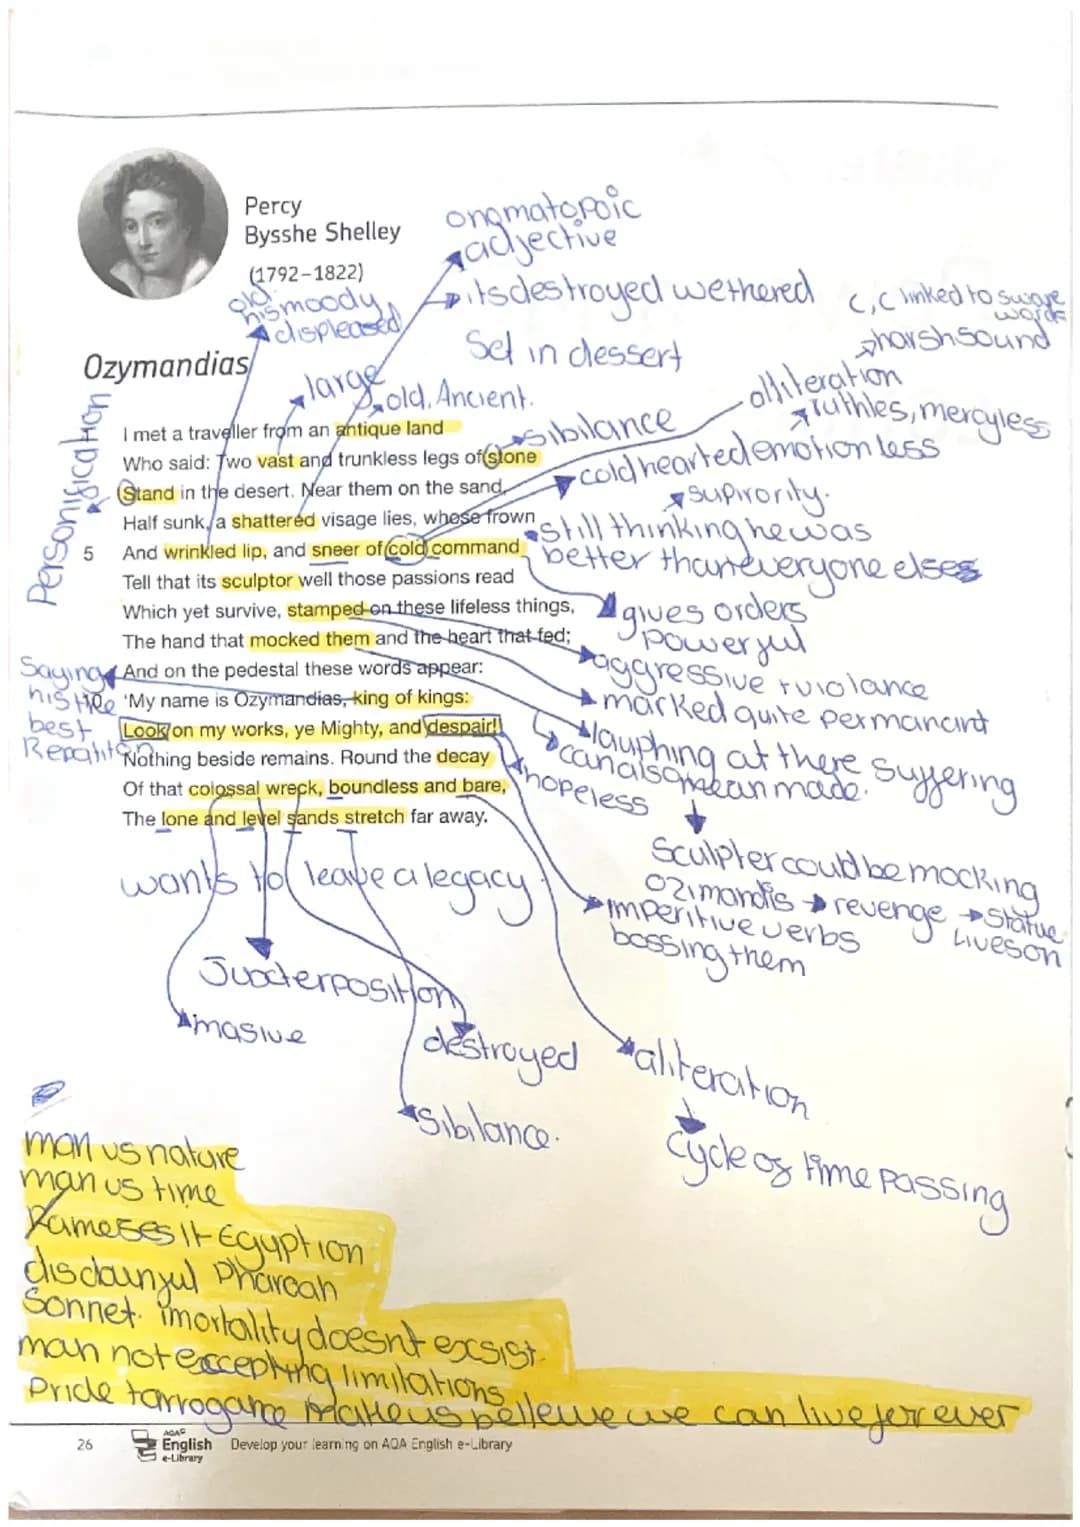 Percy
Bysshe Shelley
(1792–1822)
onomatopoic
adjective
its destroyed wethered
old
his moody
displeased
C,C linked to sware
words
harsh sound
Set in dessert
Ozymandias
large
old, Ancient.
alliteration
ruthles, mercyless
sibilance
cold hearted emotionless
supirority.
Personification
I met a traveller from an antique land
Who said: Two vast and trunkless legs of stone
Stand in the desert. Near them on the sand,
Half sunk, a shattered visage lies, whose frown
5 And wrinkled lip, and sneer of cold command
Tell that its sculptor well those passions read
Which yet survive, stamped on these lifeless things,
The hand that mocked them and the heart that fed;
And on the pedestal these words appear:
'My name is Ozymandias, king of kings:
Look on my works, ye Mighty, and despair!'
Nothing beside remains. Round the decay
Of that colossal wreck, boundless and bare,
The lone and level sands stretch far away.
still thinking he was
better than everyone elses
gives orders
powerful
aggressive + violance
marked quite permanant
laughing at there suffering
can also mean made.
hopeless
Saying
his the
best
Repatiton
Sculpter could be mocking
Ozimandis revenge statue
lives on
imperitive verbs
bossing them
wants to leave a legacy
Juxterposition
masive
destroyed
sibilance.
aliteration
cycle of time passing
man vs nature
man vs time
Rameses II Egyption
disdainful Pharoah
Sonnet. imortality doesnt exsist.
man not eccepting limitations
Pride + arrogance makes us believe we can live for ever
26
AQA
English
e-Library
Develop your learning on AQA English e-Library